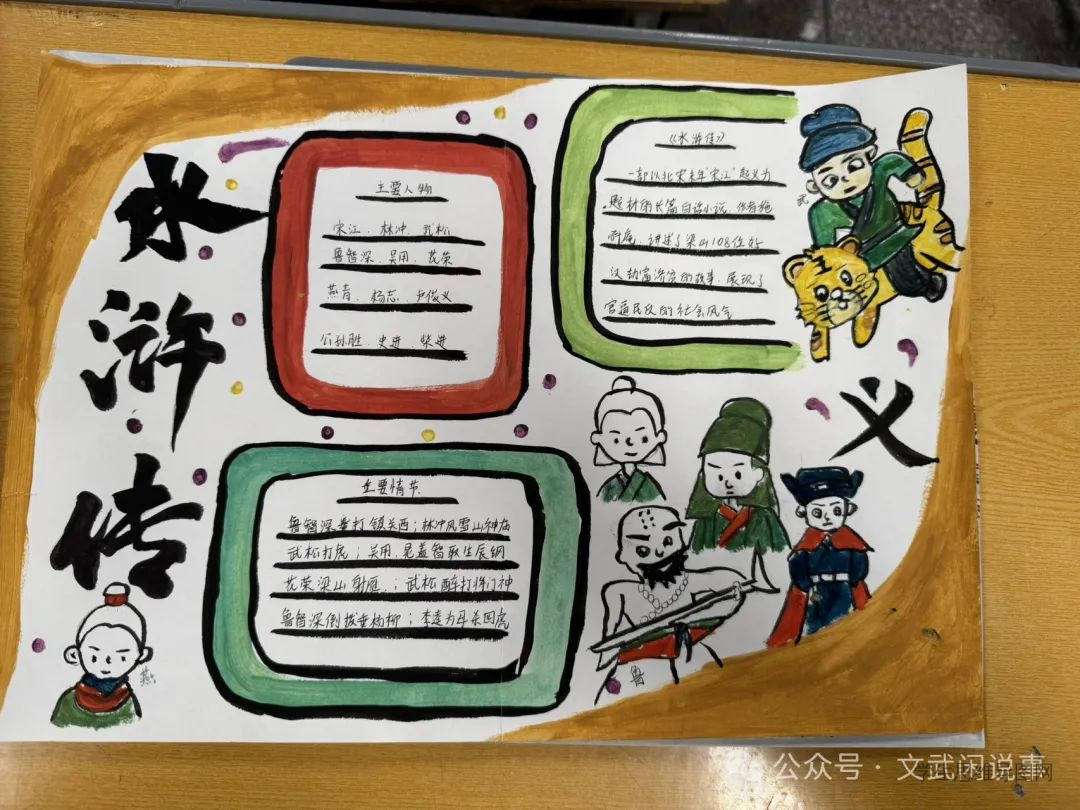 水浒传
主要人物
宋江、林冲、武松
鲁智深、吴用、花荣
燕青、杨志、卢俊义
公孙胜、史进 柴进
《水浒传》
一部以北宋末年"宋江"起义为
题材的长篇白话小说,作者施
耐庵,讲述了梁山108位好
汉劫富济贫的故事,展现了
官逼民反的社会风气
武
义
主要情节
鲁智深拳打镇关西;林冲风雪山神庙
武松打虎;吴用、晁盖智取生辰纲
花荣梁山射雁;武松醉打蒋门神
鲁智深倒拔垂杨柳;李逵为母杀四虎
燕
鲁
公众号·文武闲说事